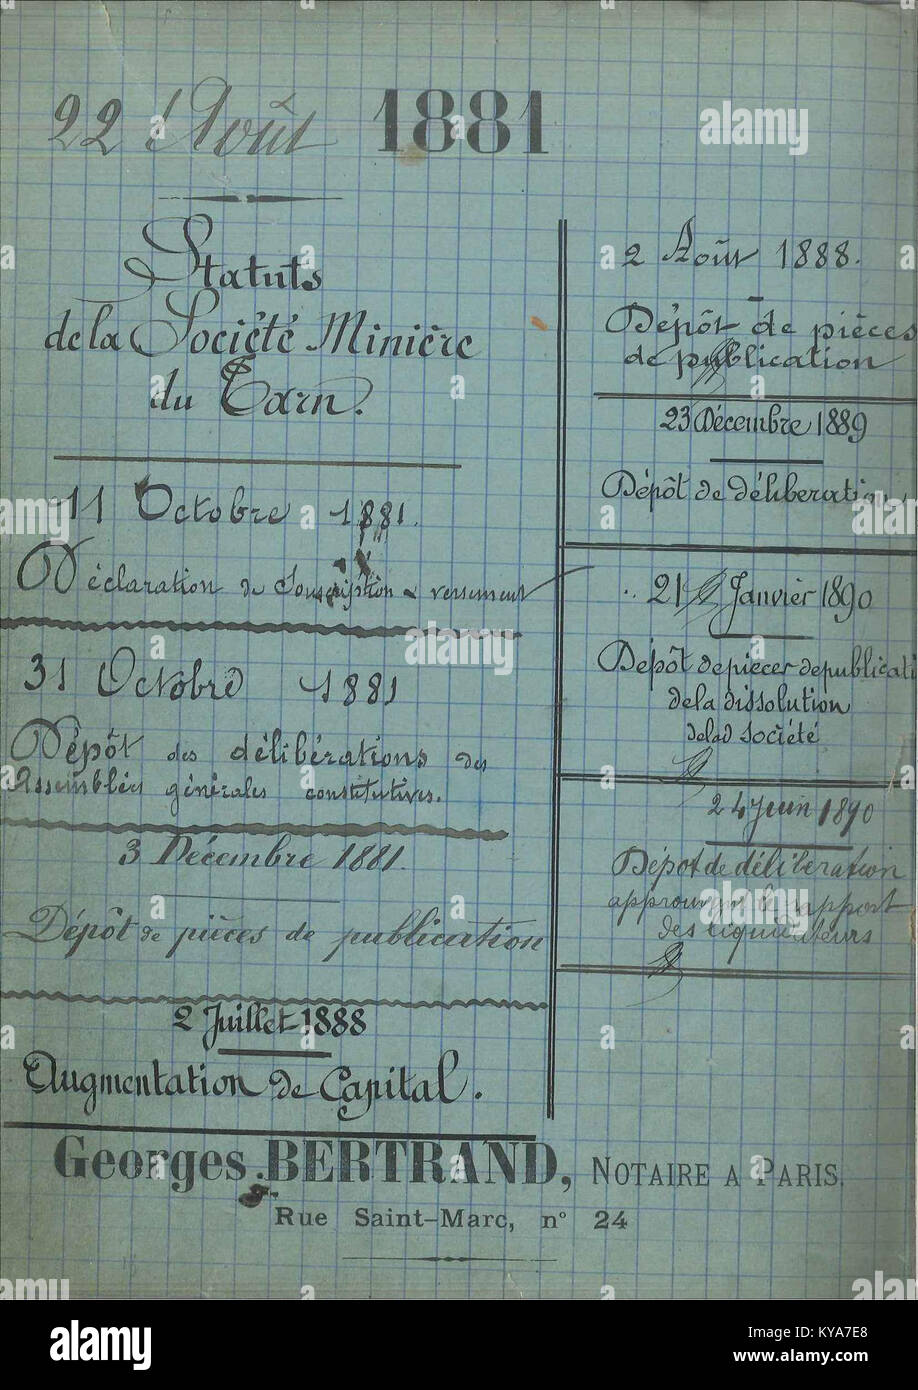 22 Août 1881
Statuts
de la Société Minière
du Tarn.
11 Octobre 1881.
Déclaration de Souscription & versement
31 Octobre 1881
Dépôt des délibérations des
Assemblées générales constitutives.
3 Décembre 1881.
Dépôt de pièces de publication
2 Juillet 1888
Augmentation de Capital.
2 Août 1888.
Dépôt de pièces
de publication
23 Décembre 1889
Dépôt de déliberation
21 Janvier 1890
Dépôt de pièces de publicati
de la dissolution
de lad société
24 Juin 1890
Dépot de délibération
approuvant le rapport
des liquidateurs
Georges BERTRAND, NOTAIRE A PARIS.
Rue Saint-Marc, n° 24
alamy
alamy
alamy
alamy
Image ID: KYA7E8
www.alamy.com